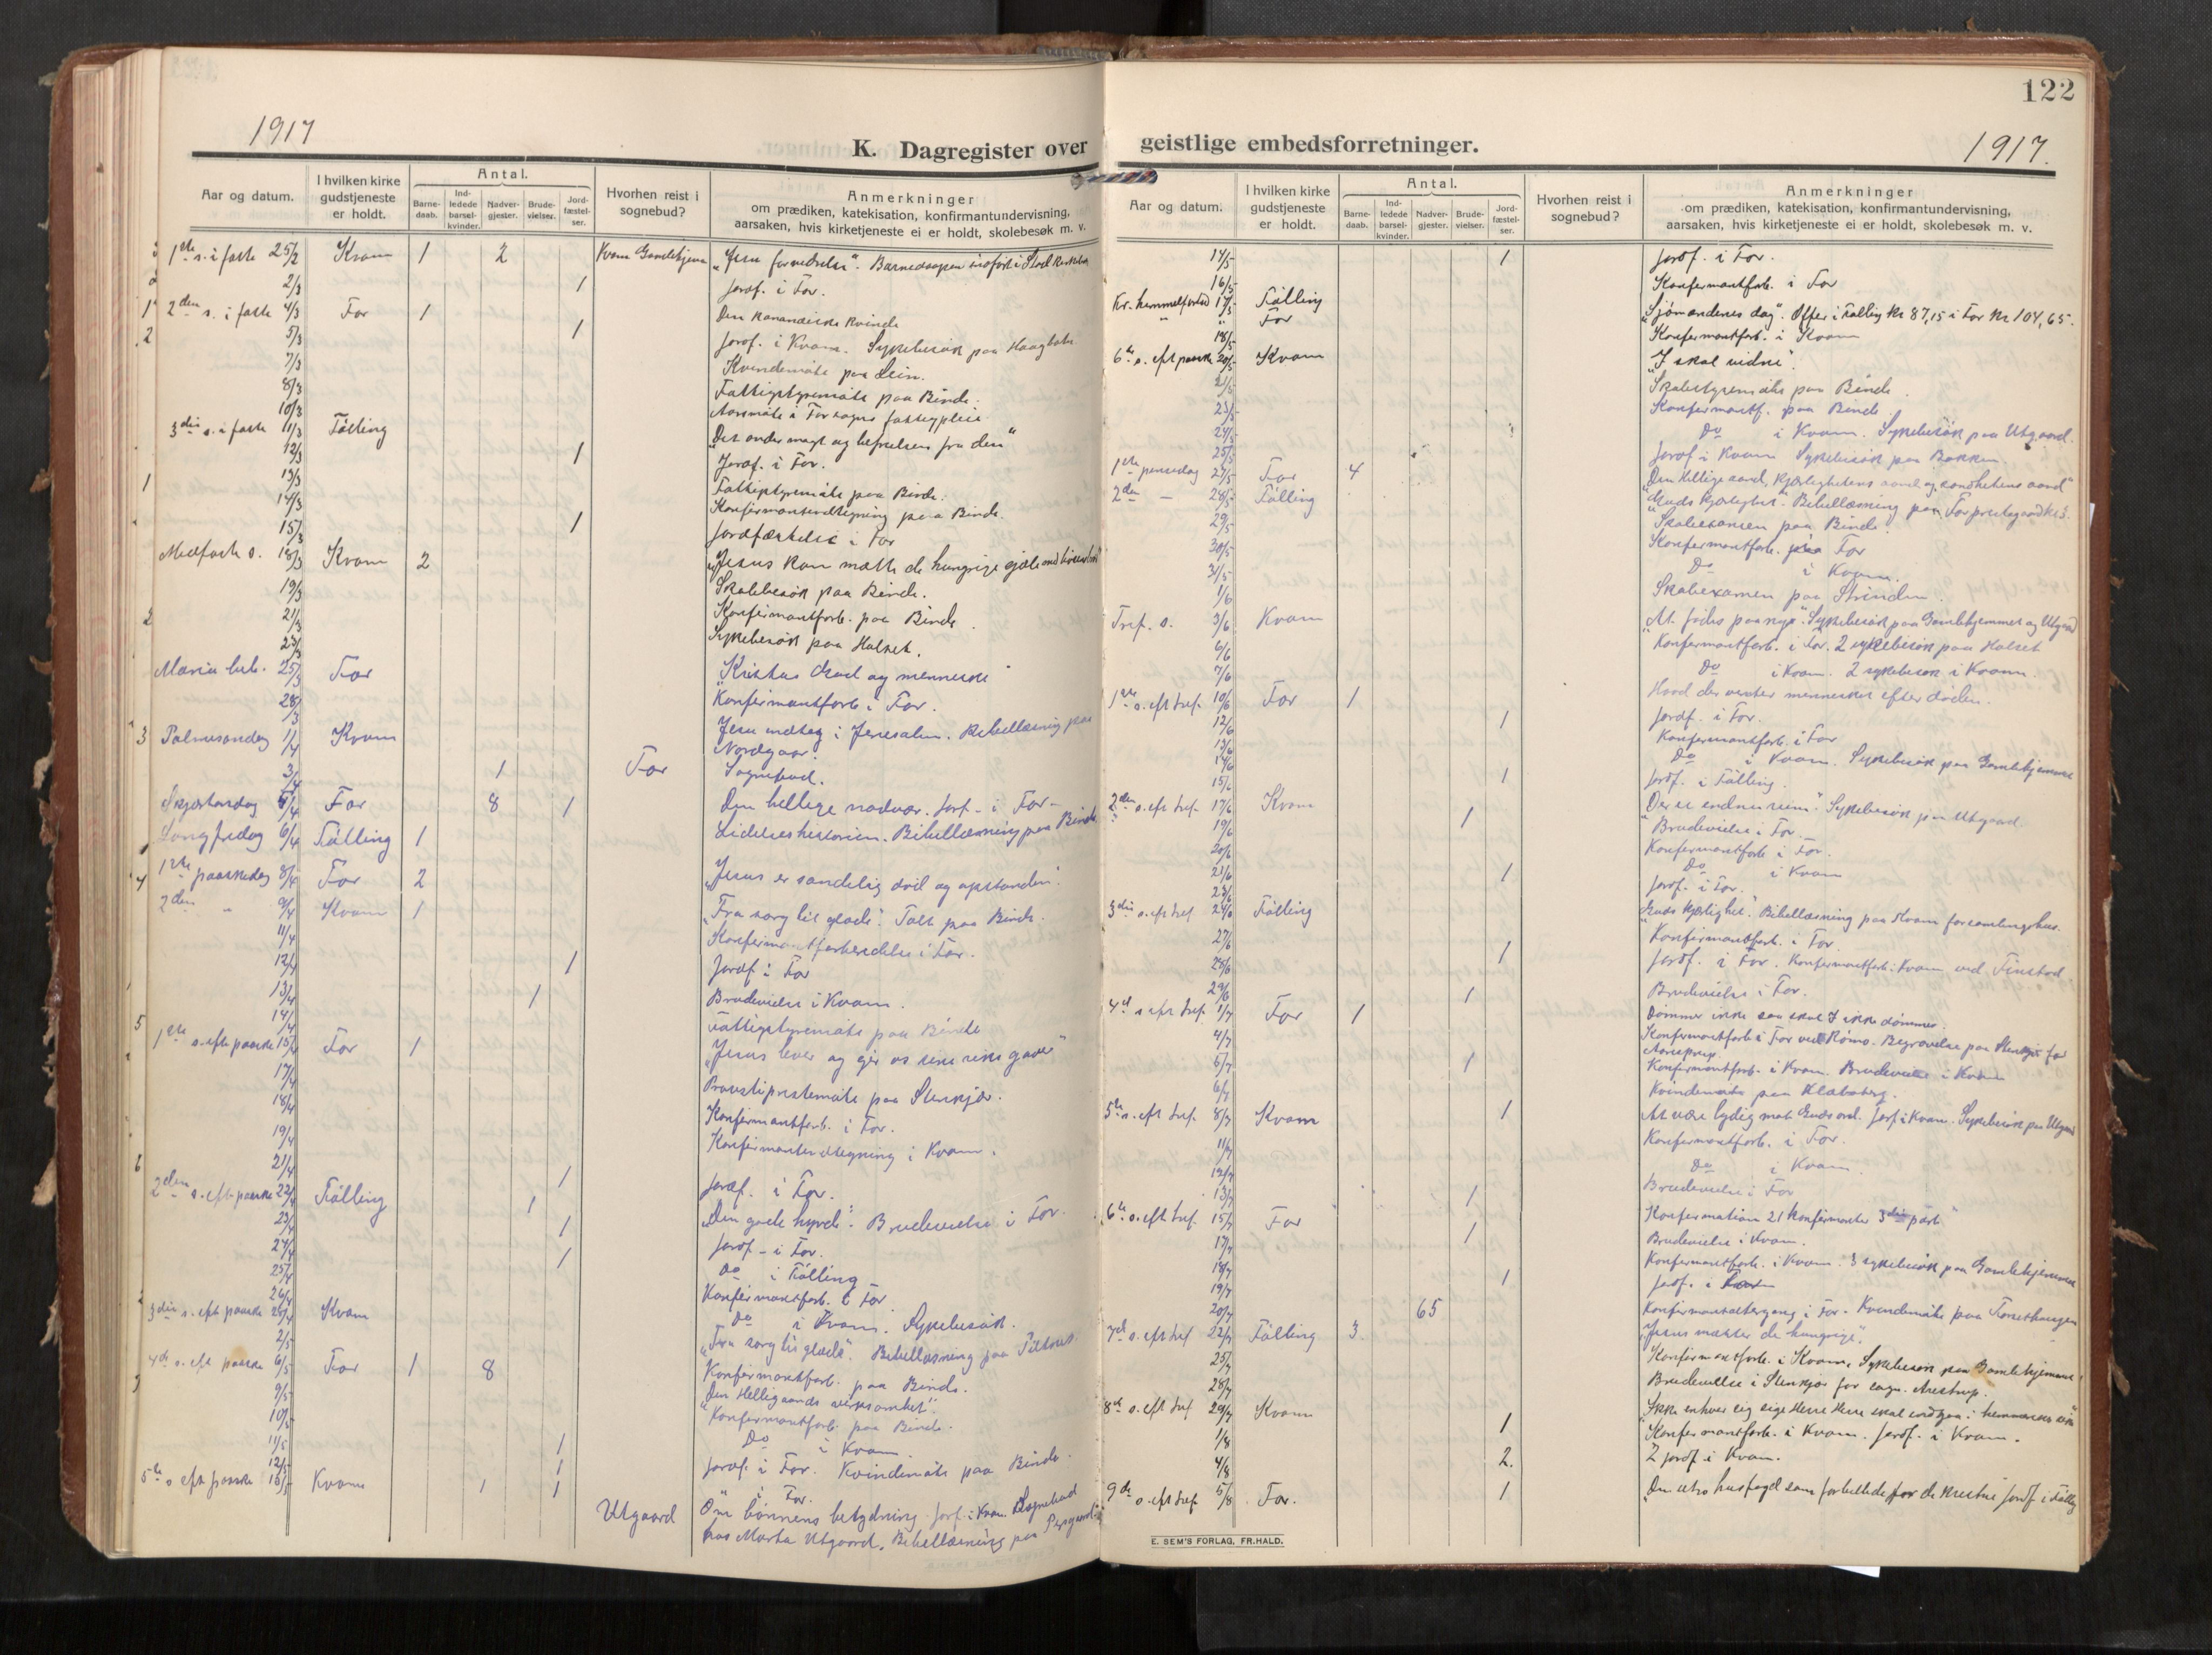 1917
K. Dagregister over
Aar og datum.
I hvilken kirke gudstjeneste er holdt.
Antal.
Barne-daab.
Ind-ledede barsel-kvinder.
Nadver-gjester.
Brude-vielser.
Jord-fæstel-ser.
Hvorhen reist i sognebud?
Anmerkninger
om prædiken, katekisation, konfirmantundervisning,
aarsaken, hvis kirketjeneste ei er holdt, skolebesøk m. v.
1ste s. i faste 25/2 Kvam 1 2 Kvam Gamlehjem "Jesu fornedrelse". Barnedaapen indført i Stod
2/3 1 Jordf. i For.
2den s. i faste 4/3 For 1 Den kananæiske kvinde
5/3 1 Jordf. i Kvam. Sykebesøk paa
7/3 Kvindemøte paa Lein.
8/3 Fattigstyremøte paa Binde.
10/3 Aarsmøte i For sogns fattigpleie
3die s. i faste 11/3 Følling "Det ondes magt og befrielsen fra den"
12/3 1 Jordf. i For.
13/3 Fattigstyremøte paa Binde.
14/3 Konfirmantindtegning paa Binde.
15/3 1 Jordfæstelse i For
Midfaste s. 18/3 Kvam 2 "Jesus kan mætte de hungrige sjæle med
19/3 Skolebesøk paa Binde.
21/3 Konfirmantforb. paa Binde.
23/3 Sykebesøk paa Halset.
Mariæ beb. 25/3 For "Kristus Gud og menneske"
28/3 Konfirmantforb. i For.
Palmesøndag 1/4 Kvam Jesu indtog i Jerusalem. Bibellæsning paa
Nordgaar.
3/4 1 For Sognebud.
Skjærtorsdag 5/4 For 8 1 Den hellige nadver. Jorf. i For.
Langfredag 6/4 Følling 1 Lidelseshistorien. Bibellæsning paa Binde
1ste paaskedag 8/4 For 2 "Jesus er sandelig død og opstanden".
2den " 9/4 Kvam 1 "Fra sorg til glæde". Talt paa Binde.
11/4 Konfirmantforberedelse i For.
12/4 1 Jordf i For
13/4 1 Brudevielse i Kvam.
14/4 Fattigstyremøte paa Binde
1ste s. efter paaske 15/4 For 1 "Jesus lever og gir os sine rike gaver"
17/4 Provstiprestemøte paa Stenkjær.
18/4 Konfirmantforb. i For.
19/4 Konfirmantindtegning i Kvam.
21/4 1 Jordf. i For.
2den s. eft. paaske 22/4 Følling 1 "Den gode hyrde". Brudevielse i For.
23/4 1 Jordf. i For.
24/4 1 Do i Følling
25/4 Konfirmantforb. i For
26/4 Do i Kvam. Sykebesøk.
3die s. eft. paaske 29/4 Kvam "Fra sorg til glæde". Bibellæsning paa
2/5 Konfirmantforb. paa Binde.
4de s. eft. paaske 6/5 For 1 8 "Den Helligaands virksomhet".
9/5 Konfirmantforb. paa Binde.
10/5 Do i Kvam.
11/5 1 Jordf. i For. Kvindemøte paa Binde.
12/5 1 " i For.
5te s. eft. paaske 13/5 Kvam 1 1 Utgaard Om bønnens betydning. Jorf. i Kvam. Sognebud
hos Marta Utgaard. Bibellæsning paa
122
geistlige embedsforretninger.
1917.
Aar og datum.
I hvilken kirke gudstjeneste er holdt.
Antal.
Barne-daab.
Ind-ledede barsel-kvinder.
Nadver-gjester.
Brude-vielser.
Jord-fæstel-ser.
Hvorhen reist i sognebud?
Anmerkninger
om prædiken, katekisation, konfirmantundervisning,
aarsaken, hvis kirketjeneste ei er holdt, skolebesøk m. v.
14/5 1 Jordf. i For.
16/5 Konfirmantforb. i For
Kr. himmelfartsd 17/5 Følling "Sjømændenes dag". Offer i Følling Kr 87,15 i For Kr 104,65.
" " For
18/5 Konfirmantforb. i Kvam
6te s. eft paaske 20/5 Kvam "I skal vidne".
21/5 Skolestyremøte paa Binde.
23/5 Konfirmantf. paa Binde.
24/5 Do i Kvam. Sykebesøk paa Utgaard.
25/5 Jordf i Kvam Sykebesøk paa Bakken.
1ste pinsedag 27/5 For 4 "Den Hellige aand, kjærlighetens aand og sandhetens aand"
2den — 28/5 Følling "Guds kjærlighet". Bibellæsning paa For prestegaard
29/5 Skoleeksamen paa Binde
30/5 Konfirmantforb. paa For
31/5 Do i Kvam.
1/6 Skoleexamen paa Strinden.
Tref. s. 3/6 Kvam "At fødes paa nye". Sykebesøk paa Gamlehjemmet og Utgaard
6/6 Konfirmantforb. i For. 2 sykebesøk paa Halset
7/6 Do i Kvam. 2 sykebesøk i Kvam.
1ste s. eft tref. 10/6 For 1 Hvad der venter mennesket efter døden.
12/6 1 Jordf. i For.
13/6 Konfirmantforb. i For
14/6 Do i Kvam. Sykebesøk paa Gamlehjemmet
15/6 1 Jordf. i Følling.
2den s. eft tref. 17/6 Kvam "Der er endnu rum". Sykebesøk paa Utgaard.
19/6 1 Brudevielse i For.
20/6 Konfirmantforb i For.
21/6 Do i Kvam
23/6 1 Jordf. i For.
3die s. eft tref 24/6 Følling "Guds kjærlighet". Bibellæsning paa Kvam forsamlingshus.
27/6 Konfirmantforb. i For.
28/6 1 Jordf. i For. Konfirmantforb. i Kvam ved Finstad
29/6 1 Brudevielse i For.
4de s eft tref 1/7 For 1 Dømmer ikke saa skal I ikke dømmes.
4/7 Konfirmantforb i For ved Rømo. Begravelse paa Stenkjær for
Aarestrup.
5/7 1 Konfirmantforb. i Kvam. Brudevielse i Kvam
6/7 Kvindemøte paa
5te s. eft tref. 8/7 Kvam 1 At være lydig mot Guds ord. Jorf. i Kvam. Sykebesøk paa Utgaard
11/7 Konfirmantforb. i For.
12/7 Do i Kvam.
13/7 1 Brudevielse i For
6te s. eft tref. 15/7 For Konfirmation 21 konfirmanter
17/7 1 Brudevielse i Kvam.
18/7 Konfirmantforb. i Kvam. 3 sykebesøk paa Gamlehjemmet
19/7 1 Jordf. i For
20/7 65 Konfirmantaltergang i For. Kvindemøte paa
7de s. eft tref 22/7 Følling 3 "Jesus mætter de hungrige".
25/7 Konfirmantforb. i Kvam. Sykebesøk paa Gamlehjemmet
28/7 Brudevielse i Stenkjær for sogn. Arestrup.
8de s. eft tref 29/7 Kvam "Ikke enhver sig sige Herre Herre skal indgaa i himmeriges rike"
1/8 1 Konfirmantforb. i Kvam. Jordf. i Kvam.
4/8 2. 2 jordf i Kvam.
9de s. eft tref 5/8 For. 1 "Den utro husfogd som forbillede for de kristne Jordf i Følling
E. SEM'S FORLAG, FR.HALD.